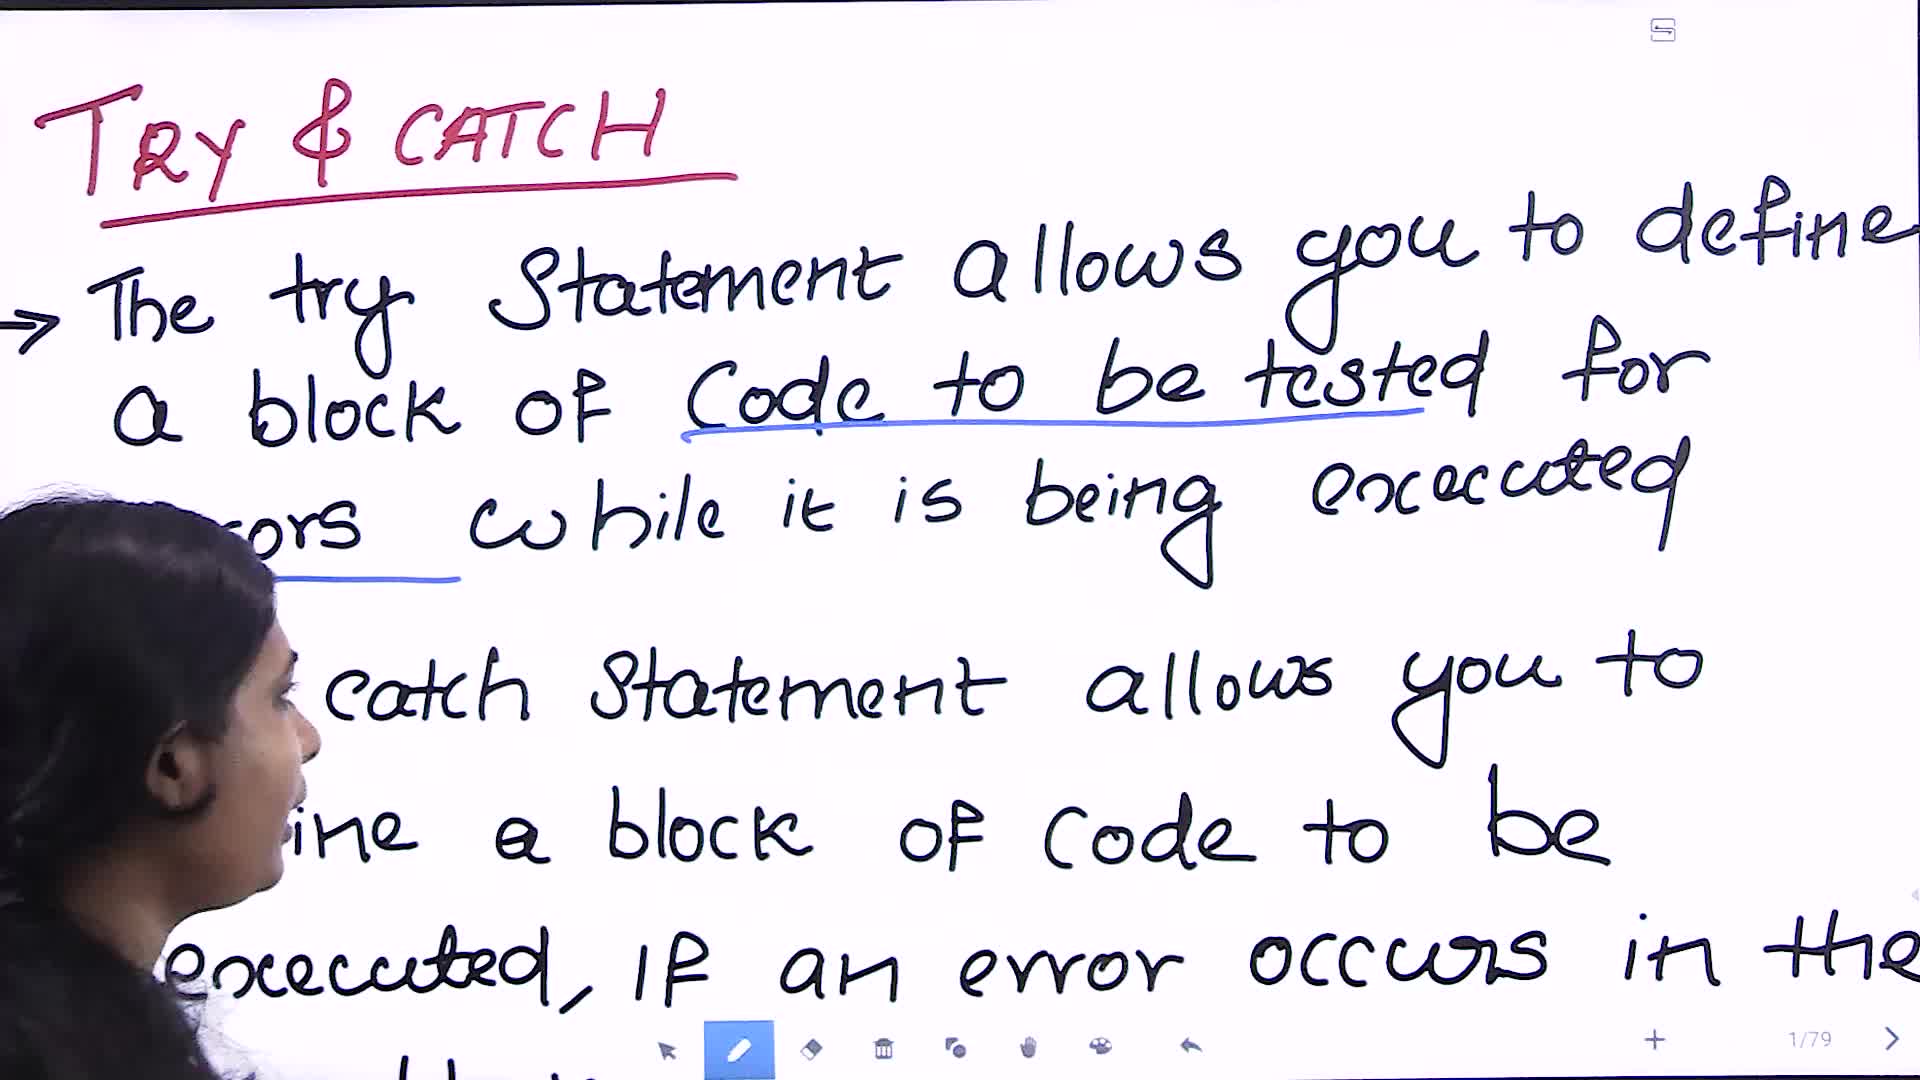 TRY & CATCH
→ The try Statement allows you to define
a block of Code to be tested for
ors while it is being executed
catch Statement allows you to
ine a block of Code to be
executed, if an error occurs in the
1/79